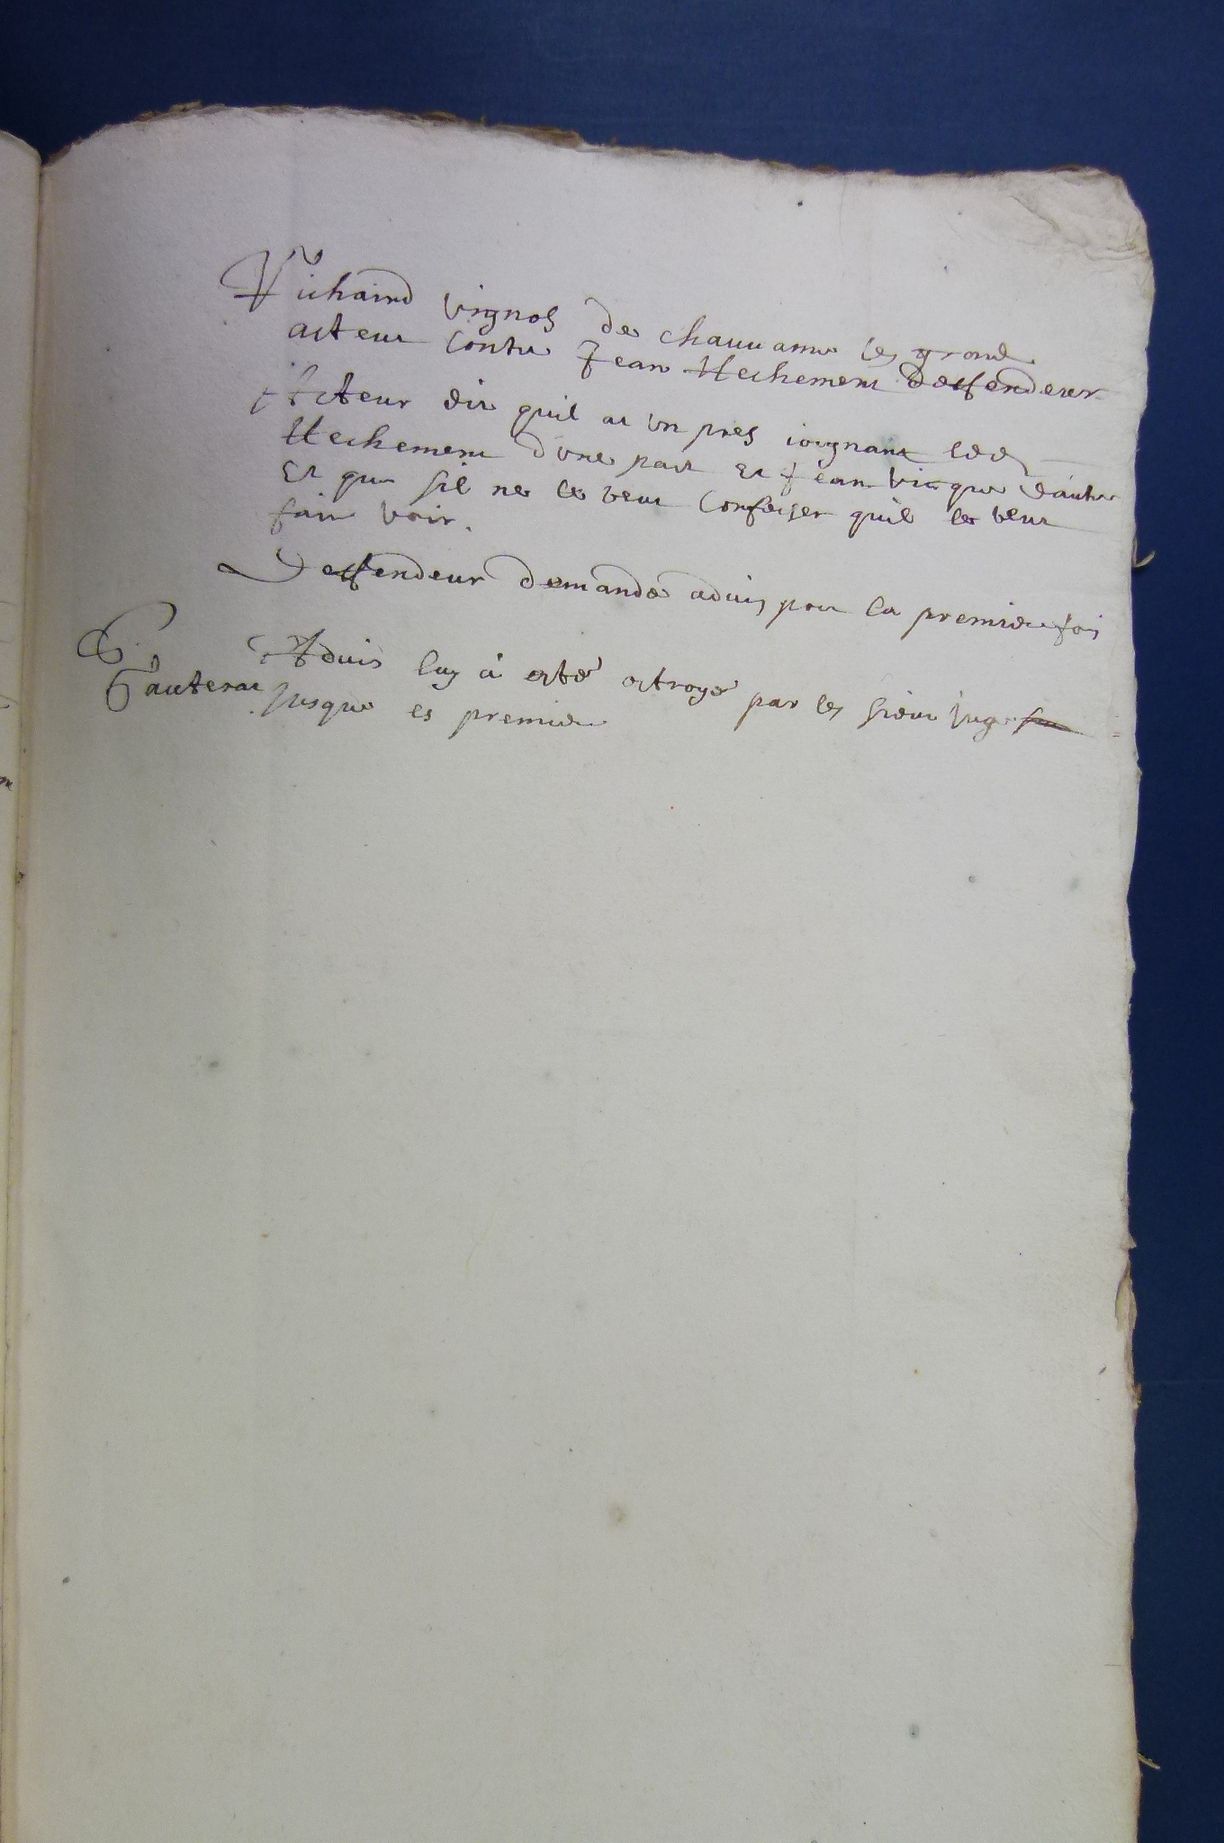 Richaird vignol de chauuanne les grand
acteur contre Jean Hechement deffendeur
Acteur dit quil at un prel iougnant led
Hechement d'une part et Jean vicque d'autre
Et que sil ne le veut confesser quil le veut
faire voir.
Deffendeur demande aduis pour la premiere fois
Aduis luy à esté octroyé par les sieur juge
Jusque es premiere